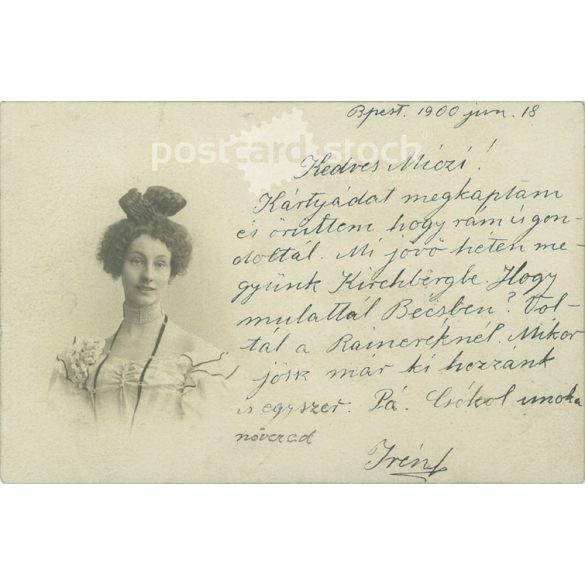 postcardstock
Bpest. 1900 jun. 18.
Kedves Miczi!
Kártyádat megkaptam
és örültem hogy rám is gon-
doltál. Mi jövö héten me-
gyünk Kirchbergbe. Hogy
mulattál Bécsben? Vol-
tál a Rainereknél. Mikor
jösz már ki hozzánk
is egyszer. Pá. Csókol unoka
növered
Irén